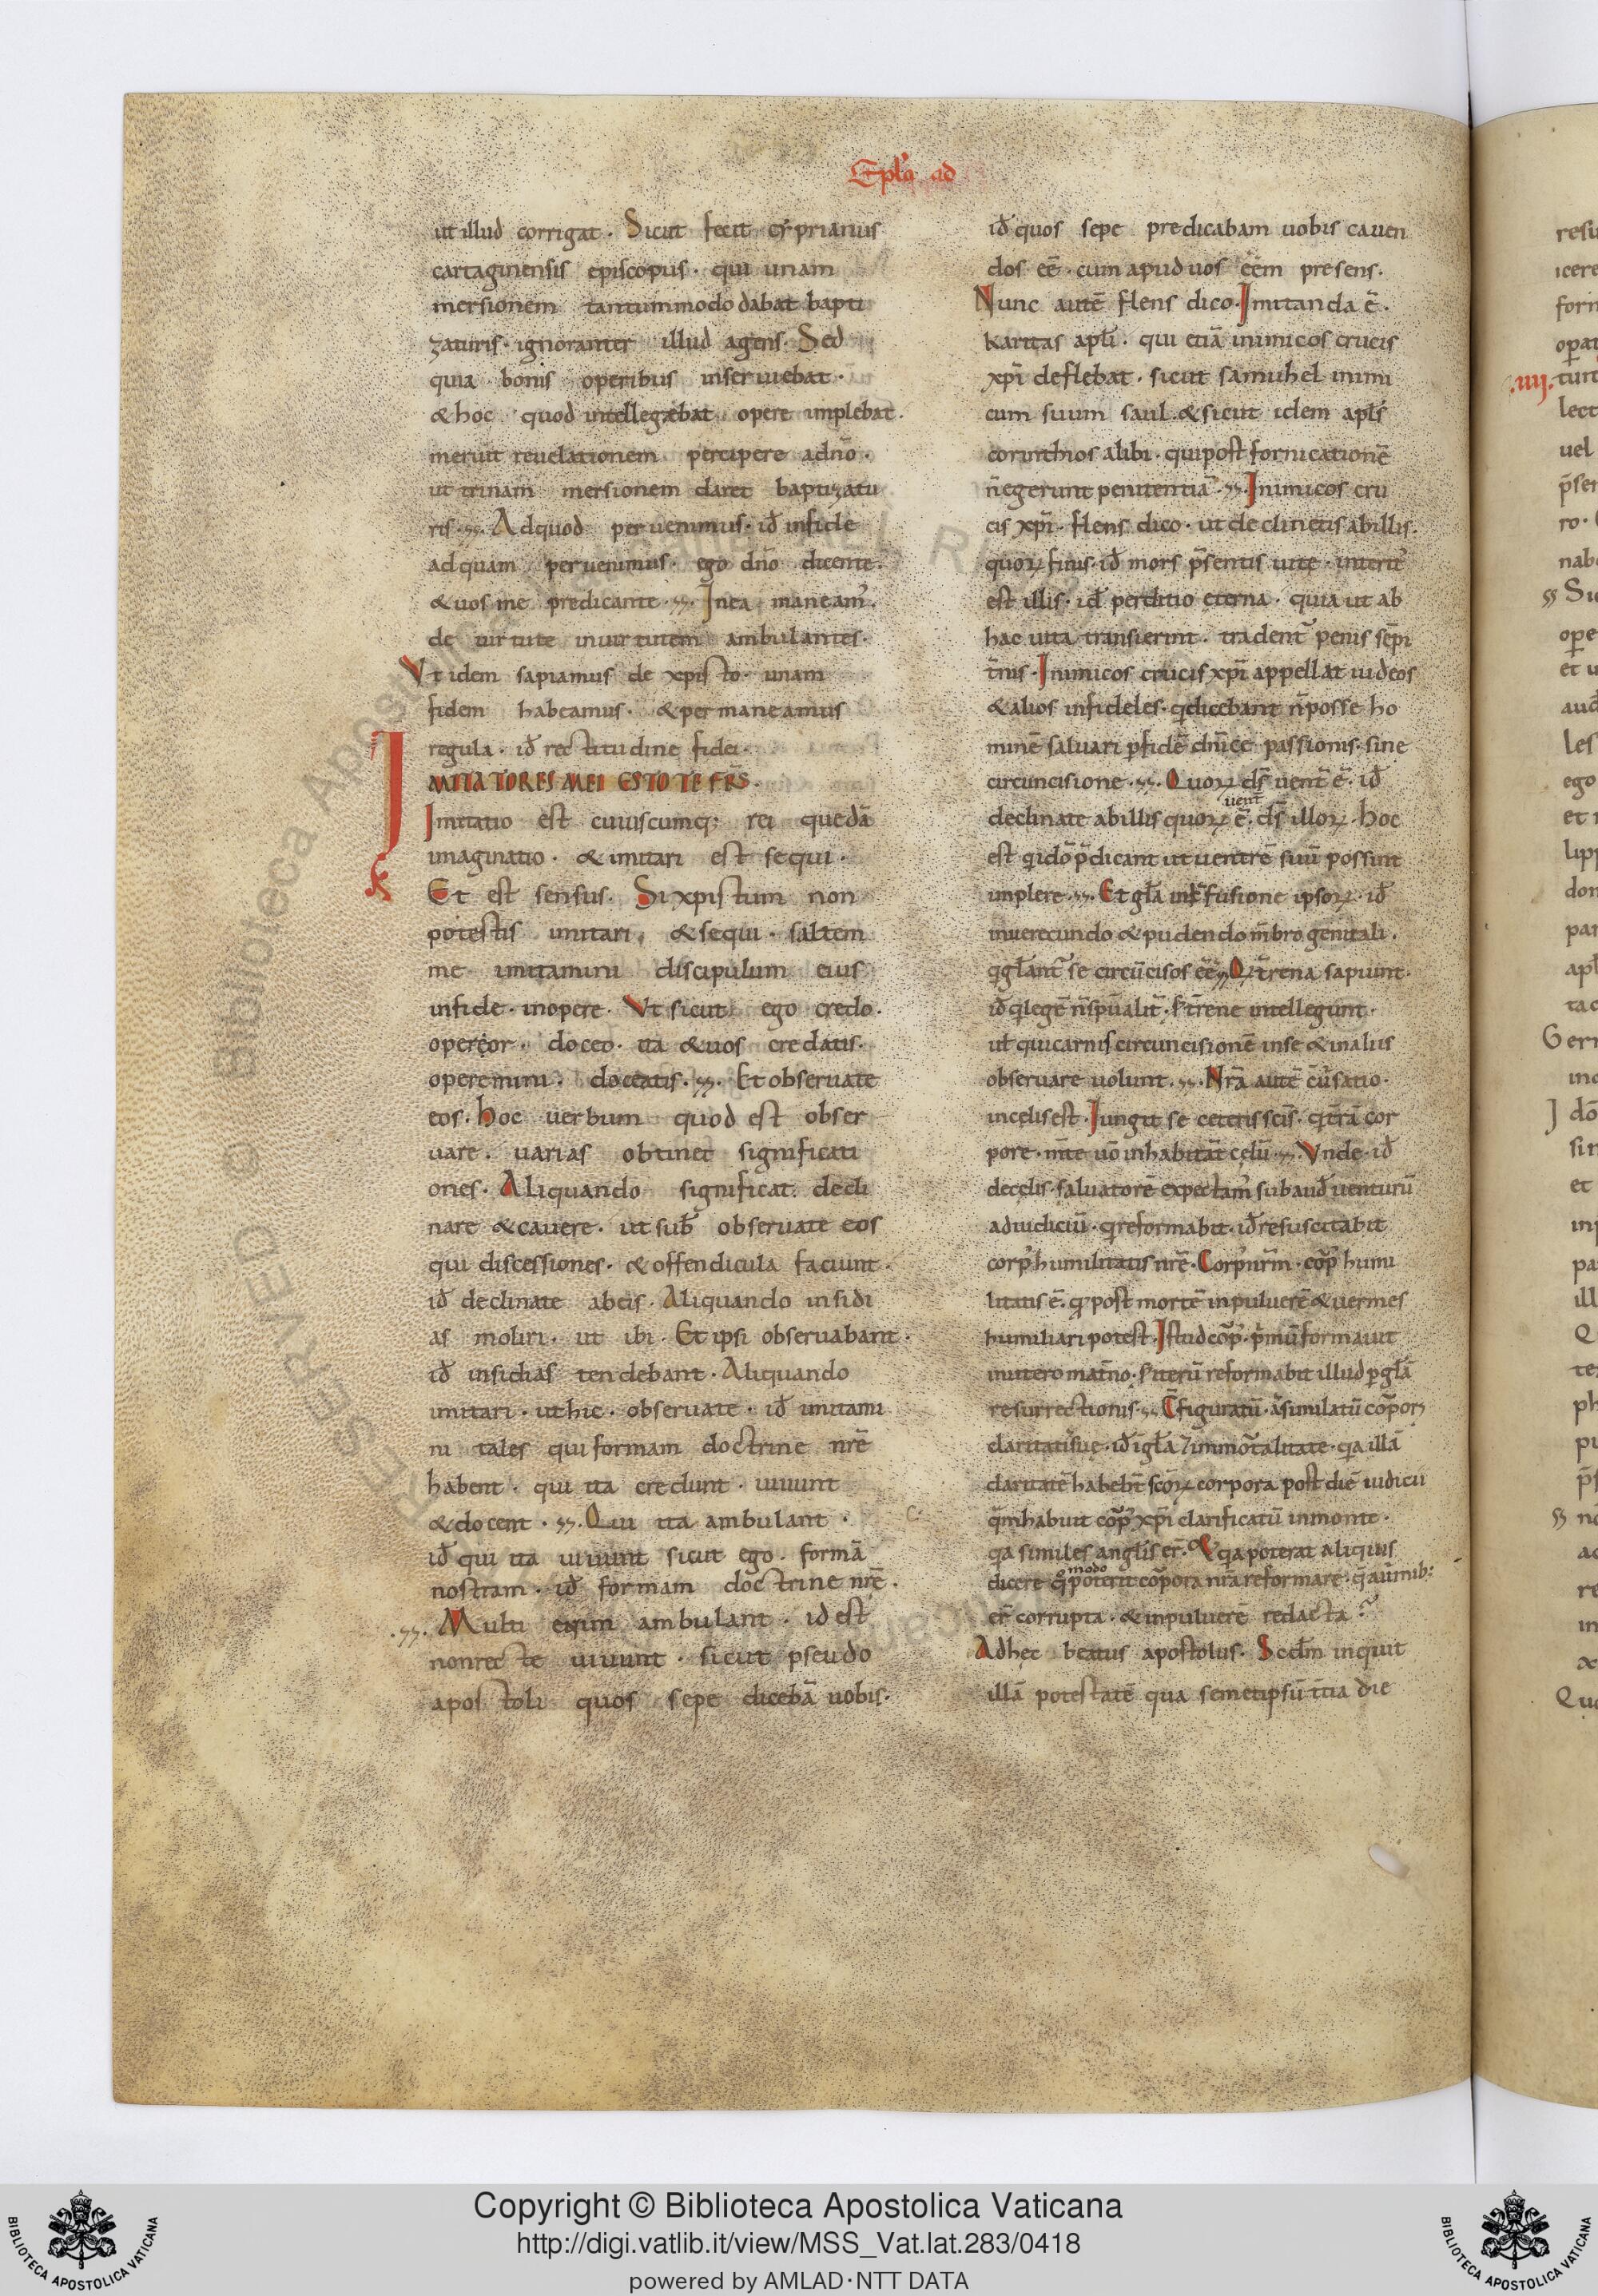 Epłā ad
ut illud corrigat. Sicut fecit cyprianus
cartaginensis episcopus. qui unam
mersionem tantummodo dabat bapti
zaturis. ignoranter illud agens. Sed
quia bonis operibus inseruiebat.
&hoc quod intellegebat opere implebat.
meruit reuelationem percipere adnō.
ut trinam mersionem daret baptizatu
ris. Adquod peruenimus. id̄ infide
adquam peruenimus. ego dn̄o dicente.
&uos me predicante. Inea maneam᾿.
de uirtute inuirtutem ambulantes.
Vt idem sapiamus de xpisto. unam
fidem habeamus. &permaneamus
regula. id̄ rectitudine fidei.
IMITATORES MEI ESTOTE FRS̄.
Imitatio est cuiuscumq; rei quedā
imaginatio. &imitari est sequi.
Et est sensus. Si xpistum non
potestis imitari. &sequi. saltem
me imitamini discipulum eius
infide. inopere. Vt sicut ego credo.
operor. doceo. ita &uos credatis.
operemini. doceatis. Et obseruate
eos. hoc uerbum quod est obser
uare. uarias obtinet significati
ones. Aliquando significat decli
nare &cauere. ut sub̄ obseruate eos
qui discessiones. &offendicula faciunt.
id̄ declinate abeis. Aliquando insidi
as moliri. ut ibi. Et ipsi obseruabant.
id̄ insidias tendebant. Aliquando
imitari. uthic. obseruate. id̄ imitami
ni tales qui formam doctrine nrē
habent. qui ita credunt. uiuunt
&docent. Qui ita ambulant.
id̄ qui ita uiuunt sicut ego. formā
nostram. id̄ formam doctrine nrē.
Multi enim ambulant. id est
nonrecte uiuunt. sicut pseudo
apostoli quos sepe dicebā uobis.
id̄ quos sepe predicabam uobis cauen
dos eē. cum apud uos eēm presens.
Nunc autē flens dico. Imitanda ē.
karitas apłi. qui etiā inimicos crucis
xpī deflebat. sicut samuhel inimi
cum suum saul. &sicut idem apłs
corinthios alibi. quipost fornicationē
n̄ egerunt penitentiā. Inimicos cru
cis xpī. flens dico. ut declinetis abillis.
quoꝝ finis. id̄ mors p̄sentis uite. interit᾿
est illis. id̄ perditio eterna. quia ut ab
hac uita transierint. tradent᾿ penis sēpi
t̄nis. Inimicos crucis xpī appellat iudeos
&alios infideles. qdicebant n̄ posse ho
minē saluari p fidē dnicē passionis. sine
circuncisione. Quoꝝ ds̄ uent̄ ē. id̄
uent̄
declinate abillis quoꝝ ē. ds̄ illoꝝ. hoc
est qidō p̄dicant ut uentrē suū possint
implere. Et głā in fusione ipsoꝝ. id̄
inuerecundo &pudendo mb̄ro genitali.
qgłant᾿ se circūcisos eē. Qi t̄rena sapiunt.
id̄ qlegē n̄ spūalit̄. s; t̄rene intellegunt.
uł quicarnis circuncisionē inse &inaliis
obseruare uolunt. Nrā autē cūsatio.
incelisest. Iungit se ceteris scīs. qt̄rā cor
pore. m̄te uō inhabitāt celū. Vnde. id̄
decelis. saluatorē expectam᾿ subaud̄ uenturū
adiudiciū. qreformabit. id̄ resuscitabit
corp᾿ humilitatis nrē. Corp᾿ nr̄m. cōp᾿ humi
litatis ē. q post mortē inpuluerē &uermes
humiliari potest. Istud cōp᾿. p̄mū formauit
inutero mat̄no. s; iterū reformabit illud p głā
resurrectionis. Cfiguratū. asimilatū cōpori
claritatis sue. id̄ igłā 7immōtalitate. qa illā
claritatē habebt̄ scōꝝ corpora post diē iudicii
q̄mhabuit cōp᾿ xpī clarificatū inmonte.
qa similes angłis er̄. Et qa poterat aliquis
modo
dicere q poterit cōpora nrā reformare. q̄ aūmib:
er̄ corrupta. &inpuluerē redacta?
Adhec beatus apostolus. Scdm inquit
illā potestatē qua semetipsū ttia die